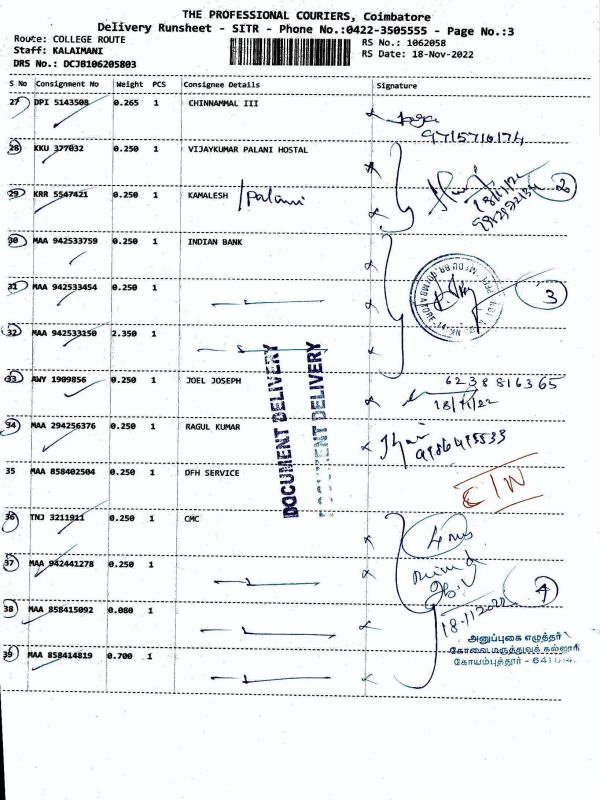 THE PROFESSIONAL COURIERS, Coimbatore
Delivery Runsheet - SITR - Phone No.:0422-3505555 - Page No.:3
Route: COLLEGE ROUTE
Staff: KALAIMANI
DRS No.: DCJB106205803
RS No.: 1062058
RS Date: 18-Nov-2022
S No Consignment No Weight PCS Consignee Details Signature
27 DPI 5143508 0.265 1 CHINNAMMAL III
9715716174
28 KKU 377032 0.250 1 VIJAYKUMAR PALANI HOSTAL
18/11/22
29 KRR 5547421 0.250 1 KAMALESH /palani
2
30 MAA 942533759 0.250 1 INDIAN BANK
31 MAA 942533454 0.250 1
3
32 MAA 942533150 2.350 1
DOCUMENT DELIVERY
DOCUMENT DELIVERY
33 AWY 1909856 0.250 1 JOEL JOSEPH 6238816365
18/11/22
34 MAA 294256376 0.250 1 RAGUL KUMAR
35 MAA 858402504 0.250 1 DFH SERVICE
C/N
36 TNJ 3211911 0.250 1 CMC
37 MAA 942441278 0.250 1
4
38 MAA 858415092 0.080 1
18.11.2022
அனுப்புகை எழுத்தர்
கோவை மருத்துவக் கல்லூரி
கோயம்புத்தூர் - 641 014.
39 MAA 858414819 0.700 1